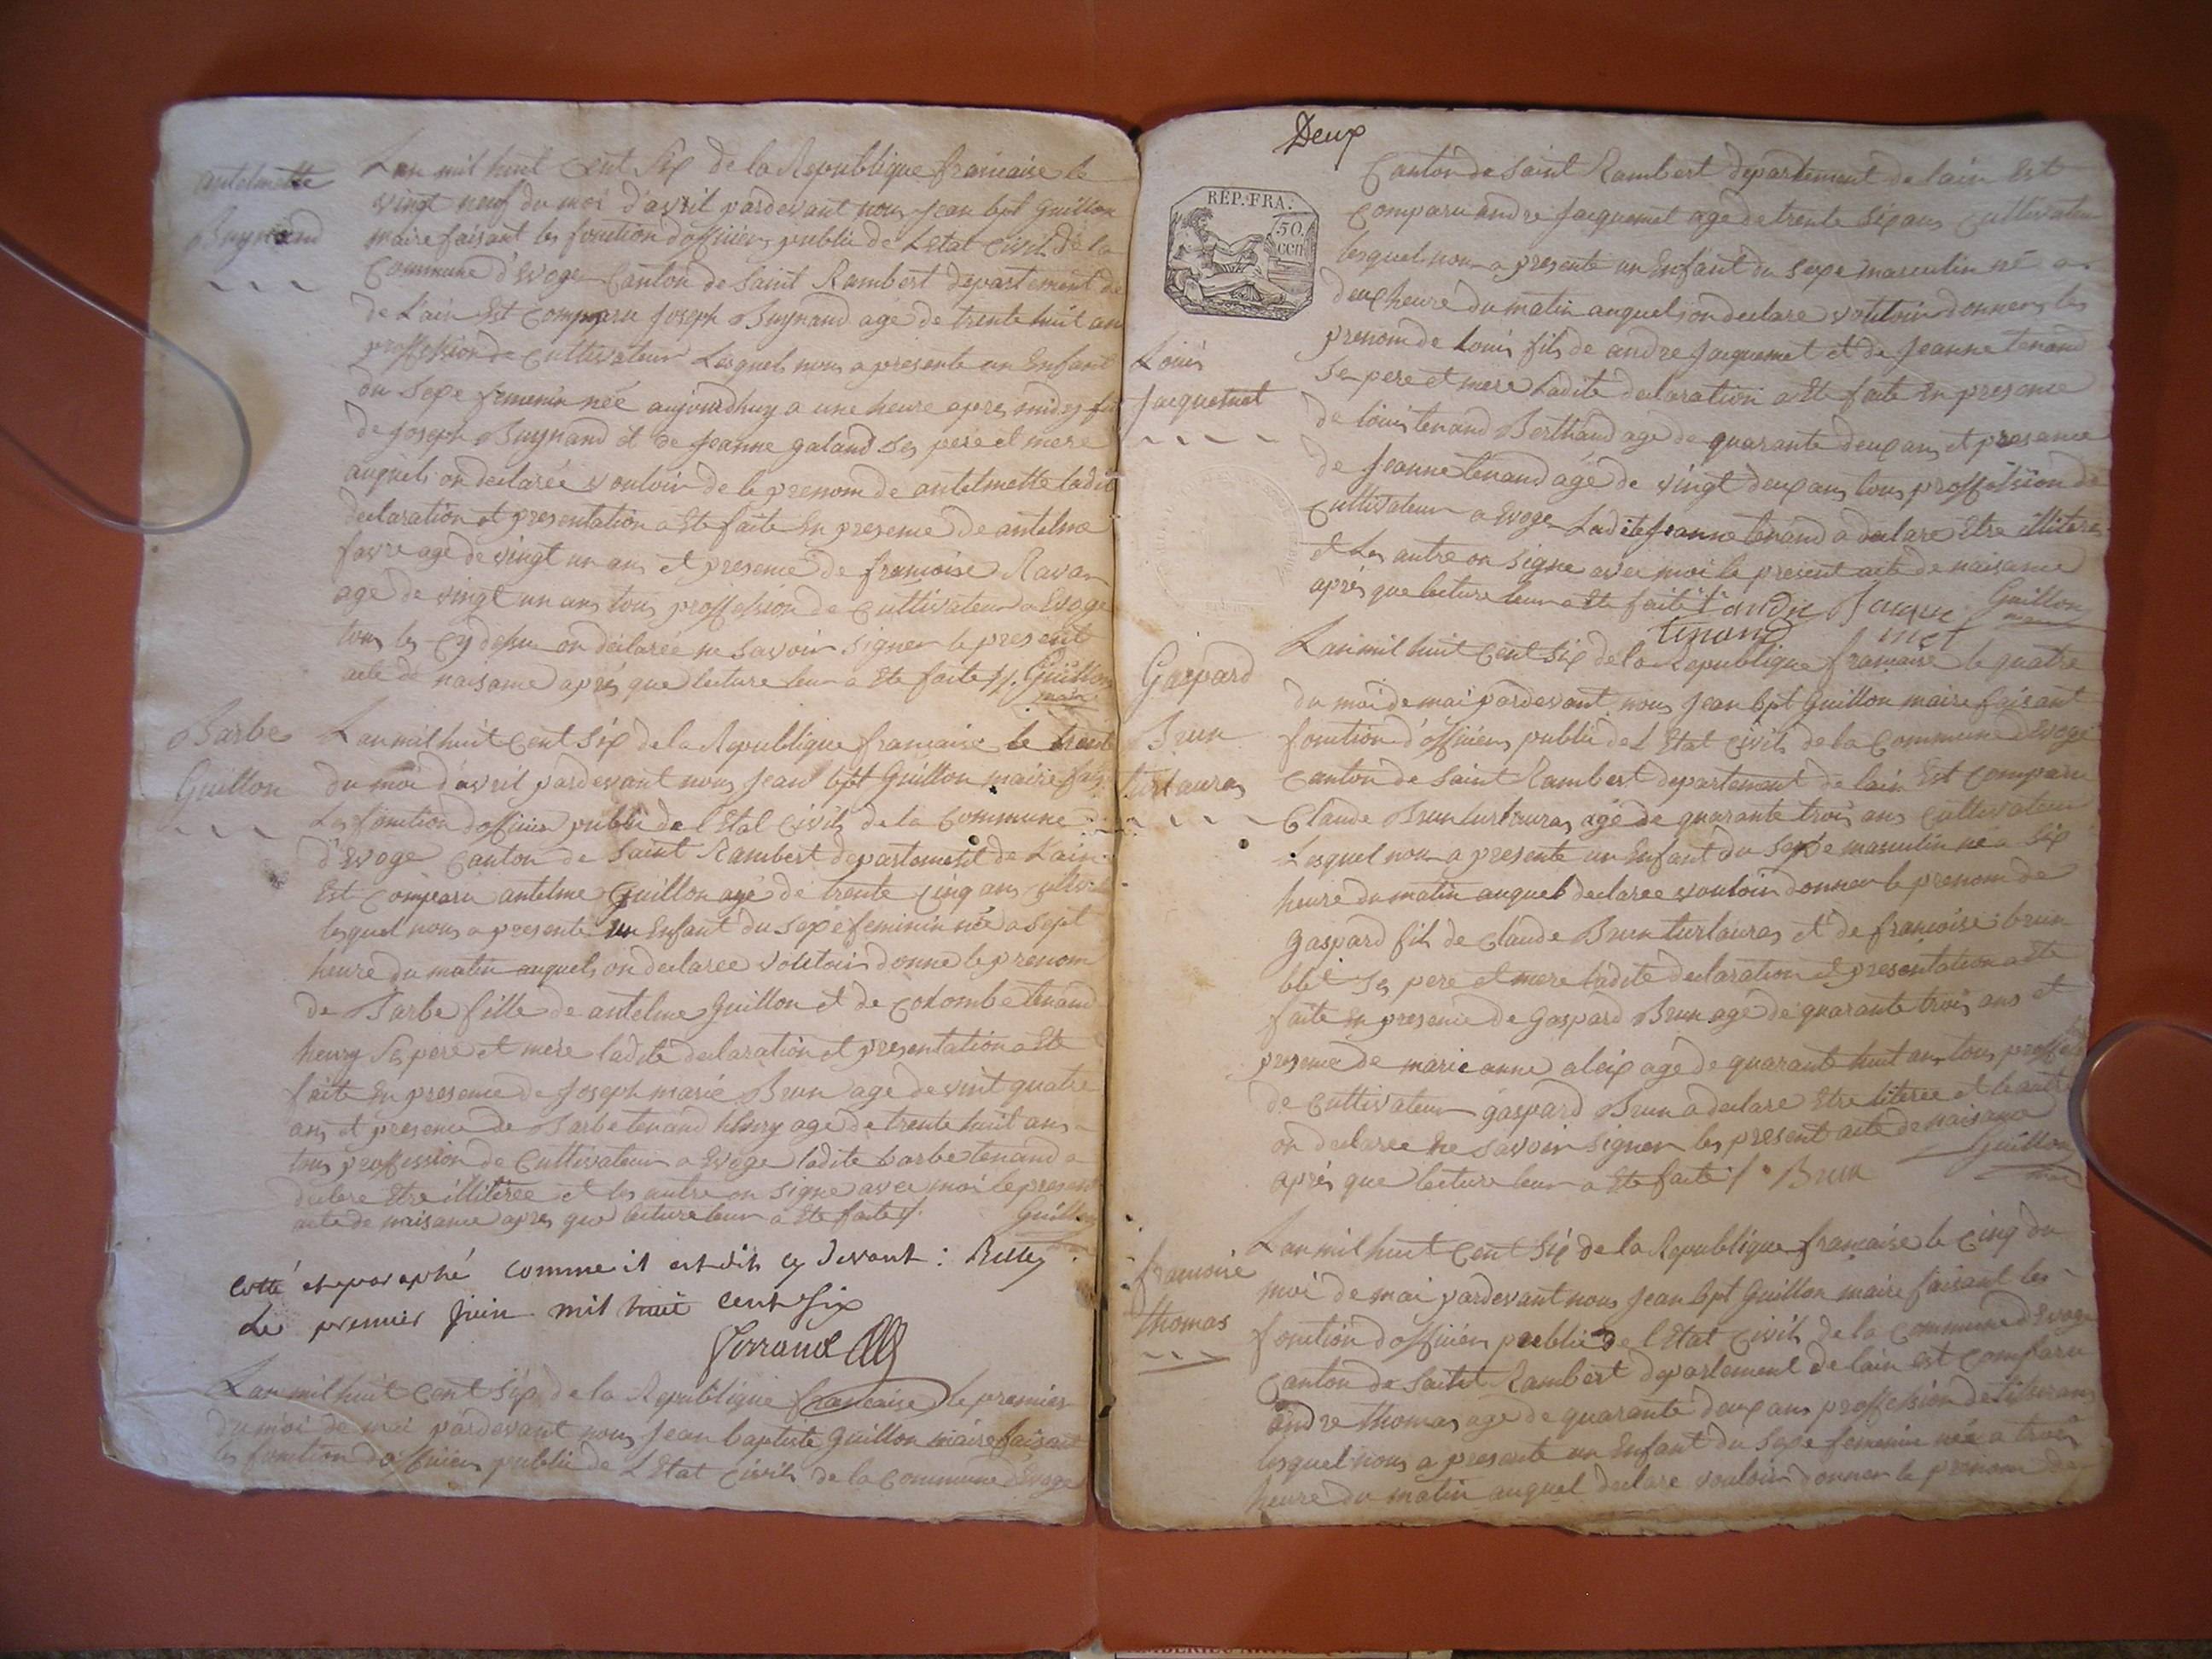 antelmette
Buynand
Lan mil huit Cent Six de la Republique francaise le
vingt neuf du moi d'avril pardevant nous Jean bpt Guillon
maire faisant les fonction d'officiers public de L'etat Civils de la
Commune d'Evoge Canton de Saint Rambert departement de
de L'ain Est Comparu Joseph Buynand agé de trente huit ans
proffession de Cultivateur Lesquels nous a presente un Enfant
du Sexe femenin née aujourdhuy a une heure apres midy
de Joseph Buynand et de Jeanne galand Ses pere et mere
auquels on declarée vouloir de le prenom de antelmette ladite
declaration et presentation a Ete faite En presence de antelme
favre age de vingt un ans et presence de francoise Ravan
age de vingt un ans tous proffession de Cultivateur a Evoge
tous les Cy dessu on declarée ne savoir signer le present
acte de naisance aprés que lecture leur a Ete faite Guillon
maire
Barbe
Guillon
Lan mil huit Cent Six de la Republique francaise le trente
du moi d'avril pardevant nous Jean bpt Guillon maire fais
Les fonction d'officier public de l'Etat Civils de la Commune
d'Evoge Canton de Saint Rambert departement de L'ain
Est Comparu antelme Guillon agé de trente Cinq ans
lesquel nous a presente un Enfant du Sexe feminin née a sept
heure du matin auquels on declaree vouloir donne le prenom
de Barbe fille de antelme Guillon et de Colombe tenand
henry Ses pere et mere ladite declaration et presentation a Ete
faite En presence de Joseph marie Brun age de vint quatre
ans et presence de Barbe tenand henry age de trente huit ans
tous proffession de Cultivateur a Evoge ladite barbe tenand a
declare Etre illiterée et les autre on signe avec moi le present
acte de naisance apres que lecture leur a Ete faite Guillon
cotté et paraphé comme il est dit cy devant : Belley
Le premier Juin mil huit cent six
Lan mil huit Cent Six de la Republique francaise le premier
du moi de mai pardevant nous Jean baptiste Guillon maire faisant
les fonction d'officiers public de L'Etat Civils de la Commune d'Evoge
Deux
RÉP. FRA.
50.
cen
Louis
Jacquemet
Canton de Saint Rambert departement de lain Est
Comparu andre Jacquemet age de trente Six ans Cultivateur
lesquels nous a presente un Enfant du Sexe masculin né a
deux heure du matin auquels on declare vouloir donner les
prenom de Louis fils de andre Jacquemet et de Jeanne tenand
Ses pere et mere Ladite declaration a Ete faite En presence
de louis tenand Berthaud age de quarante deux ans et presance
de Jeanne tenand agé de vingt deux ans tous proffession de
Cultivateur a Evoge Ladite Jeanne tenand a declare Etre illiteree
et Les autre on signe avec moi le present acte de naisance
aprés que lecture leur a Ete faite andre Jacque Guillon
tenand met
Gaspard
Brun
turlauras
Lan mil huit Cent Six de la Republique francaise le quatre
du moi de mai pardevant nous Jean bpt Guillon maire faisant
fonction d'officiers public de L'Etat Civils de la Commune d'Evoge
Canton de Saint Rambert departement de lain Est Comparu
Claude Brun turlauras agé de quarante trois ans Cultivateur
Lesquel nous a presente un Enfant du Sexe masculin né a Six
heure du matin auquel declaree vouloir donner le prenom de
Gaspard fils de Claude Brun turlauras et de francoise brun
Ses pere et mere ladite declaration et presentation a Ete
faite En presence de Gaspard Brun agé de quarante trois ans et
presence de marie anne aleix agé de quarante huit ans tous proffes
de Cultivateur gaspard Brun a declare Etre literee et le autre
on declaree ne savoir signer les present acte de naisance
aprés que lecture leur a Ete faite Brun Guillon
francoise
thomas
Lan mil huit Cent Six de la Republique francaise le Cinq du
moi de mai pardevant nous Jean bpt Guillon maire faisant les
fonction d'officiers public de l'Etat Civils de la Commune d'Evoge
Canton de Saint Rambert departement de lain est Comparu
andre thomas age de quarante deux ans proffession de tisserans
lesquel nous a presente un Enfant du Sexe femenin née a trois
heure du matin auquel declare vouloir donner le prenom de